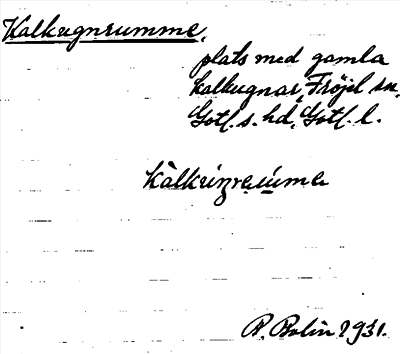 Kalkugnsrumme,
plats med gamla
kalkugnar, Fröjel sn,
Gotl. s. hd, Gotl. l.
P. Bolin 1931.